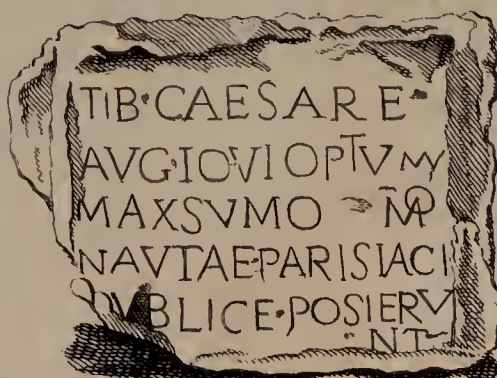 TIB·CAESARE·
AVG·IOVI OPTVMV
MAXSVMO M̄O
NAVTAE·PARISIACI
PVBLICE·POSIERV
NT